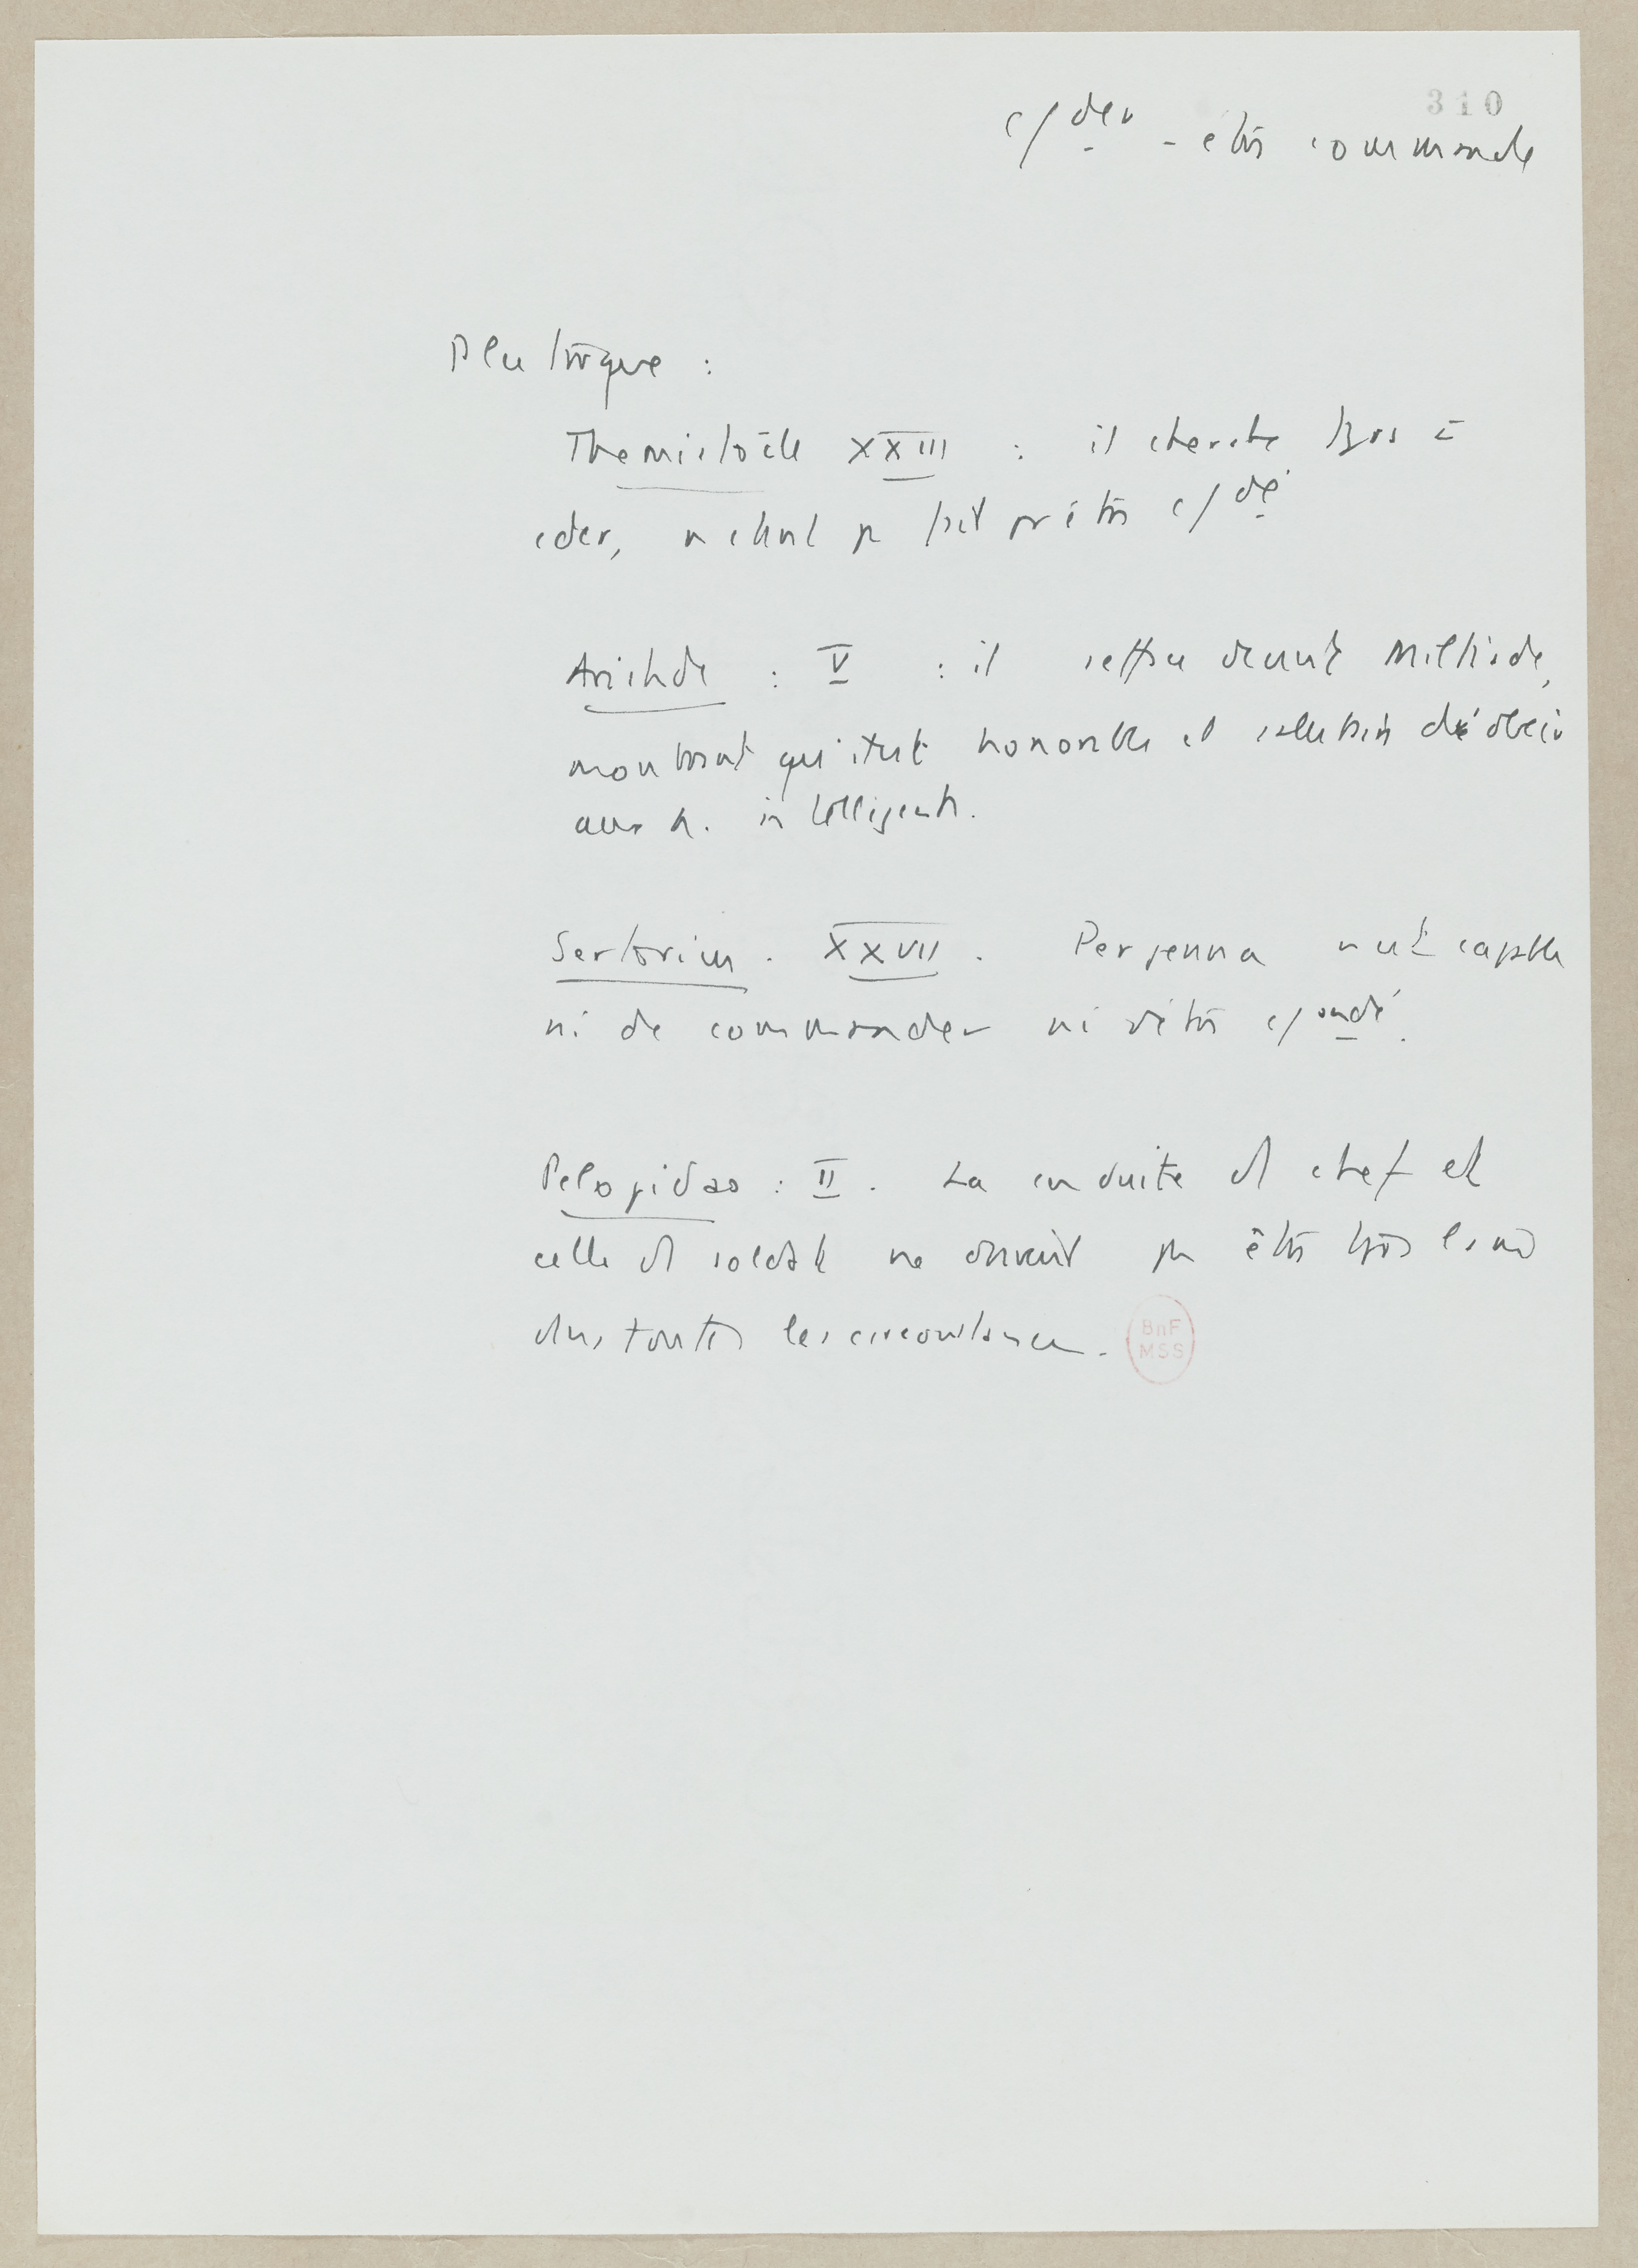 310
c/der - être commandé
Plutarque :
Themistocle XXIII : il cherche tjrs à
cder, n'étant pas fait pr être c/dé
Aristide : V : il s'effaça devant Miltiade,
montrant qu'il était honorable et salutaire d'obéir
aux h. intelligents.
Sertorius . XXVII . Perpenna n'était capable
ni de commander ni d'être c/andé.
Pelopidas : II . La conduite d'1 chef et
celle d'1 soldat ne doivent pas être tjrs les mêmes
dans toutes les circonstances.
BnF
MSS